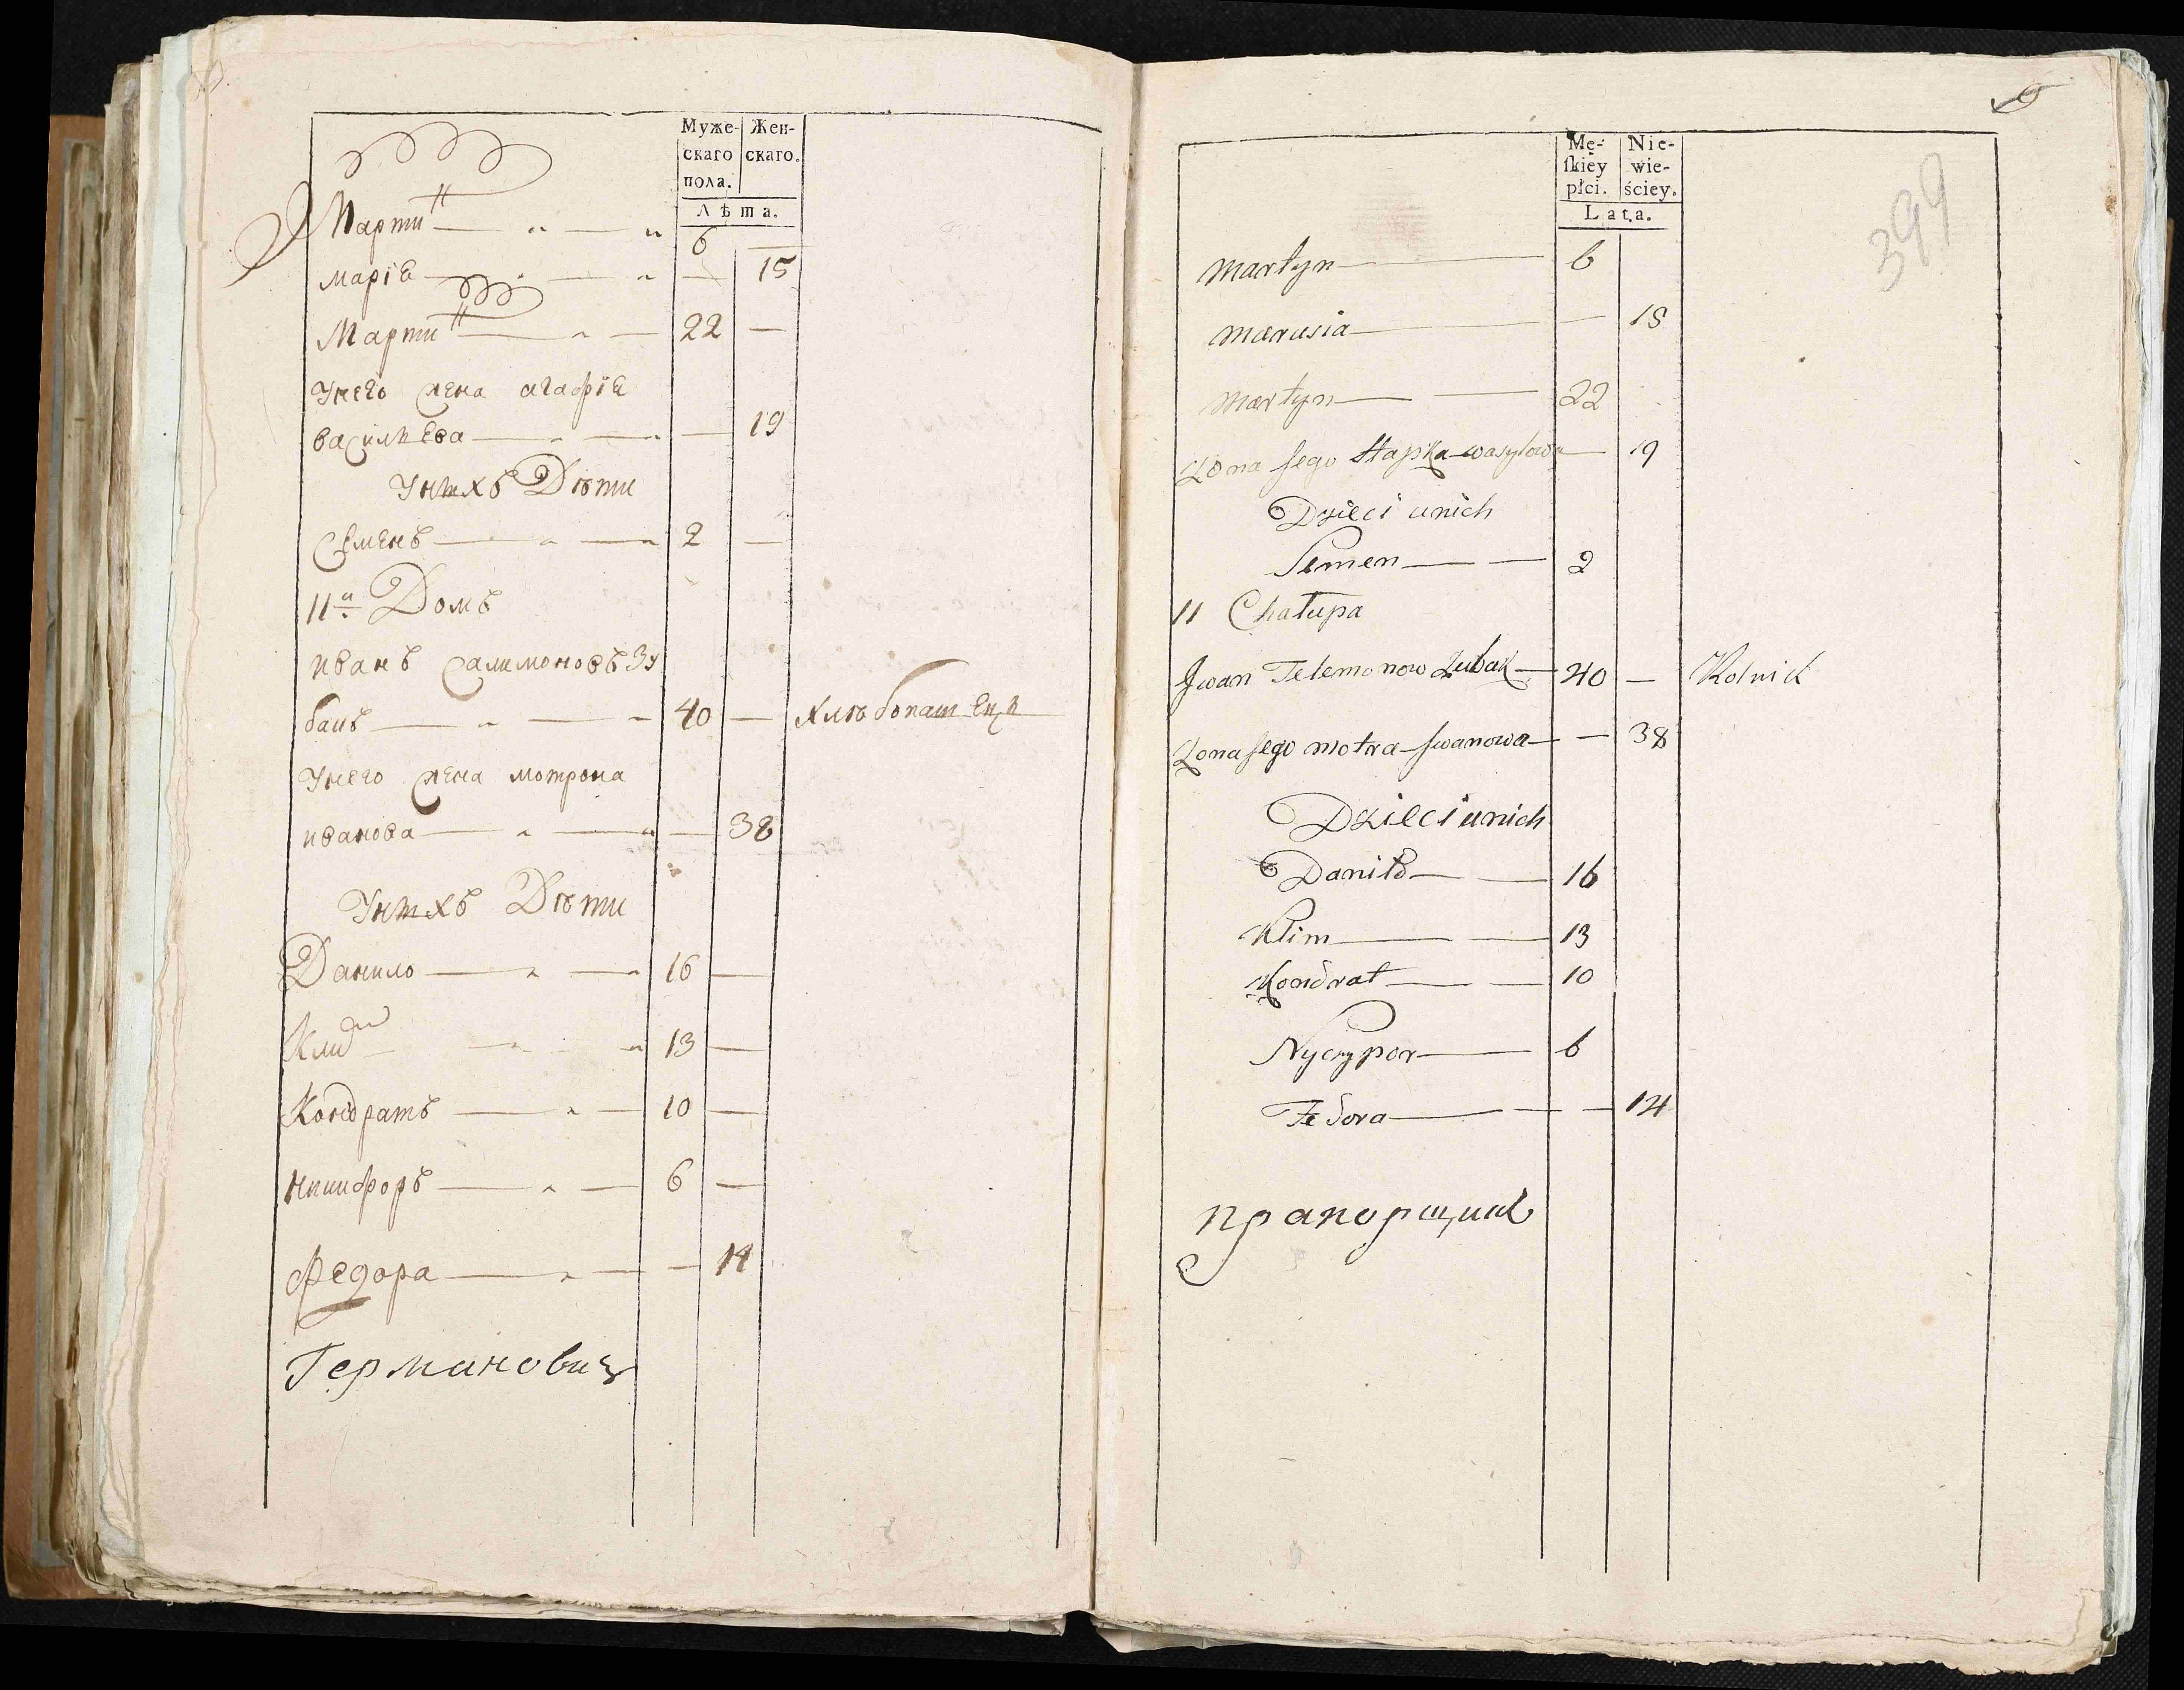 Муже-
скаго
пола.
Жен-
скаго.
Лѣта.
Мартин 6 —
Маріѣ — 15
Мартин 22 —
Унего жена агафіѣ
васильева — 19
Унихъ Дѣти
Семенъ 2 —
11й Домъ
иванъ Салимоновъ Зу
бакъ 40 — хлѣбопашецъ
Унего жена мотрона
иванова — 38
Унихъ Дѣти
Данило 16 —
Клим 13 —
Кондратъ 10 —
никифоръ 6 —
Федора — 14
Германович
Mę-
ſkiey
płci.
Nie-
wie-
ściey.
Lata.
399
Martyn 6
Marusia — 15
Martyn 22
Żona Jego Hapka wasylowa 19
Dzieci unich
Semen 2
11 Chałupa
Jwan Telemonow Zubak 40 — Rolnik
Żona Jego Motra Jwanowa — 38
Dzieci unich
Daniło 16
Klim 13
Kondrat 10
Nyczypor 6
Fedora — 14
прапорщик